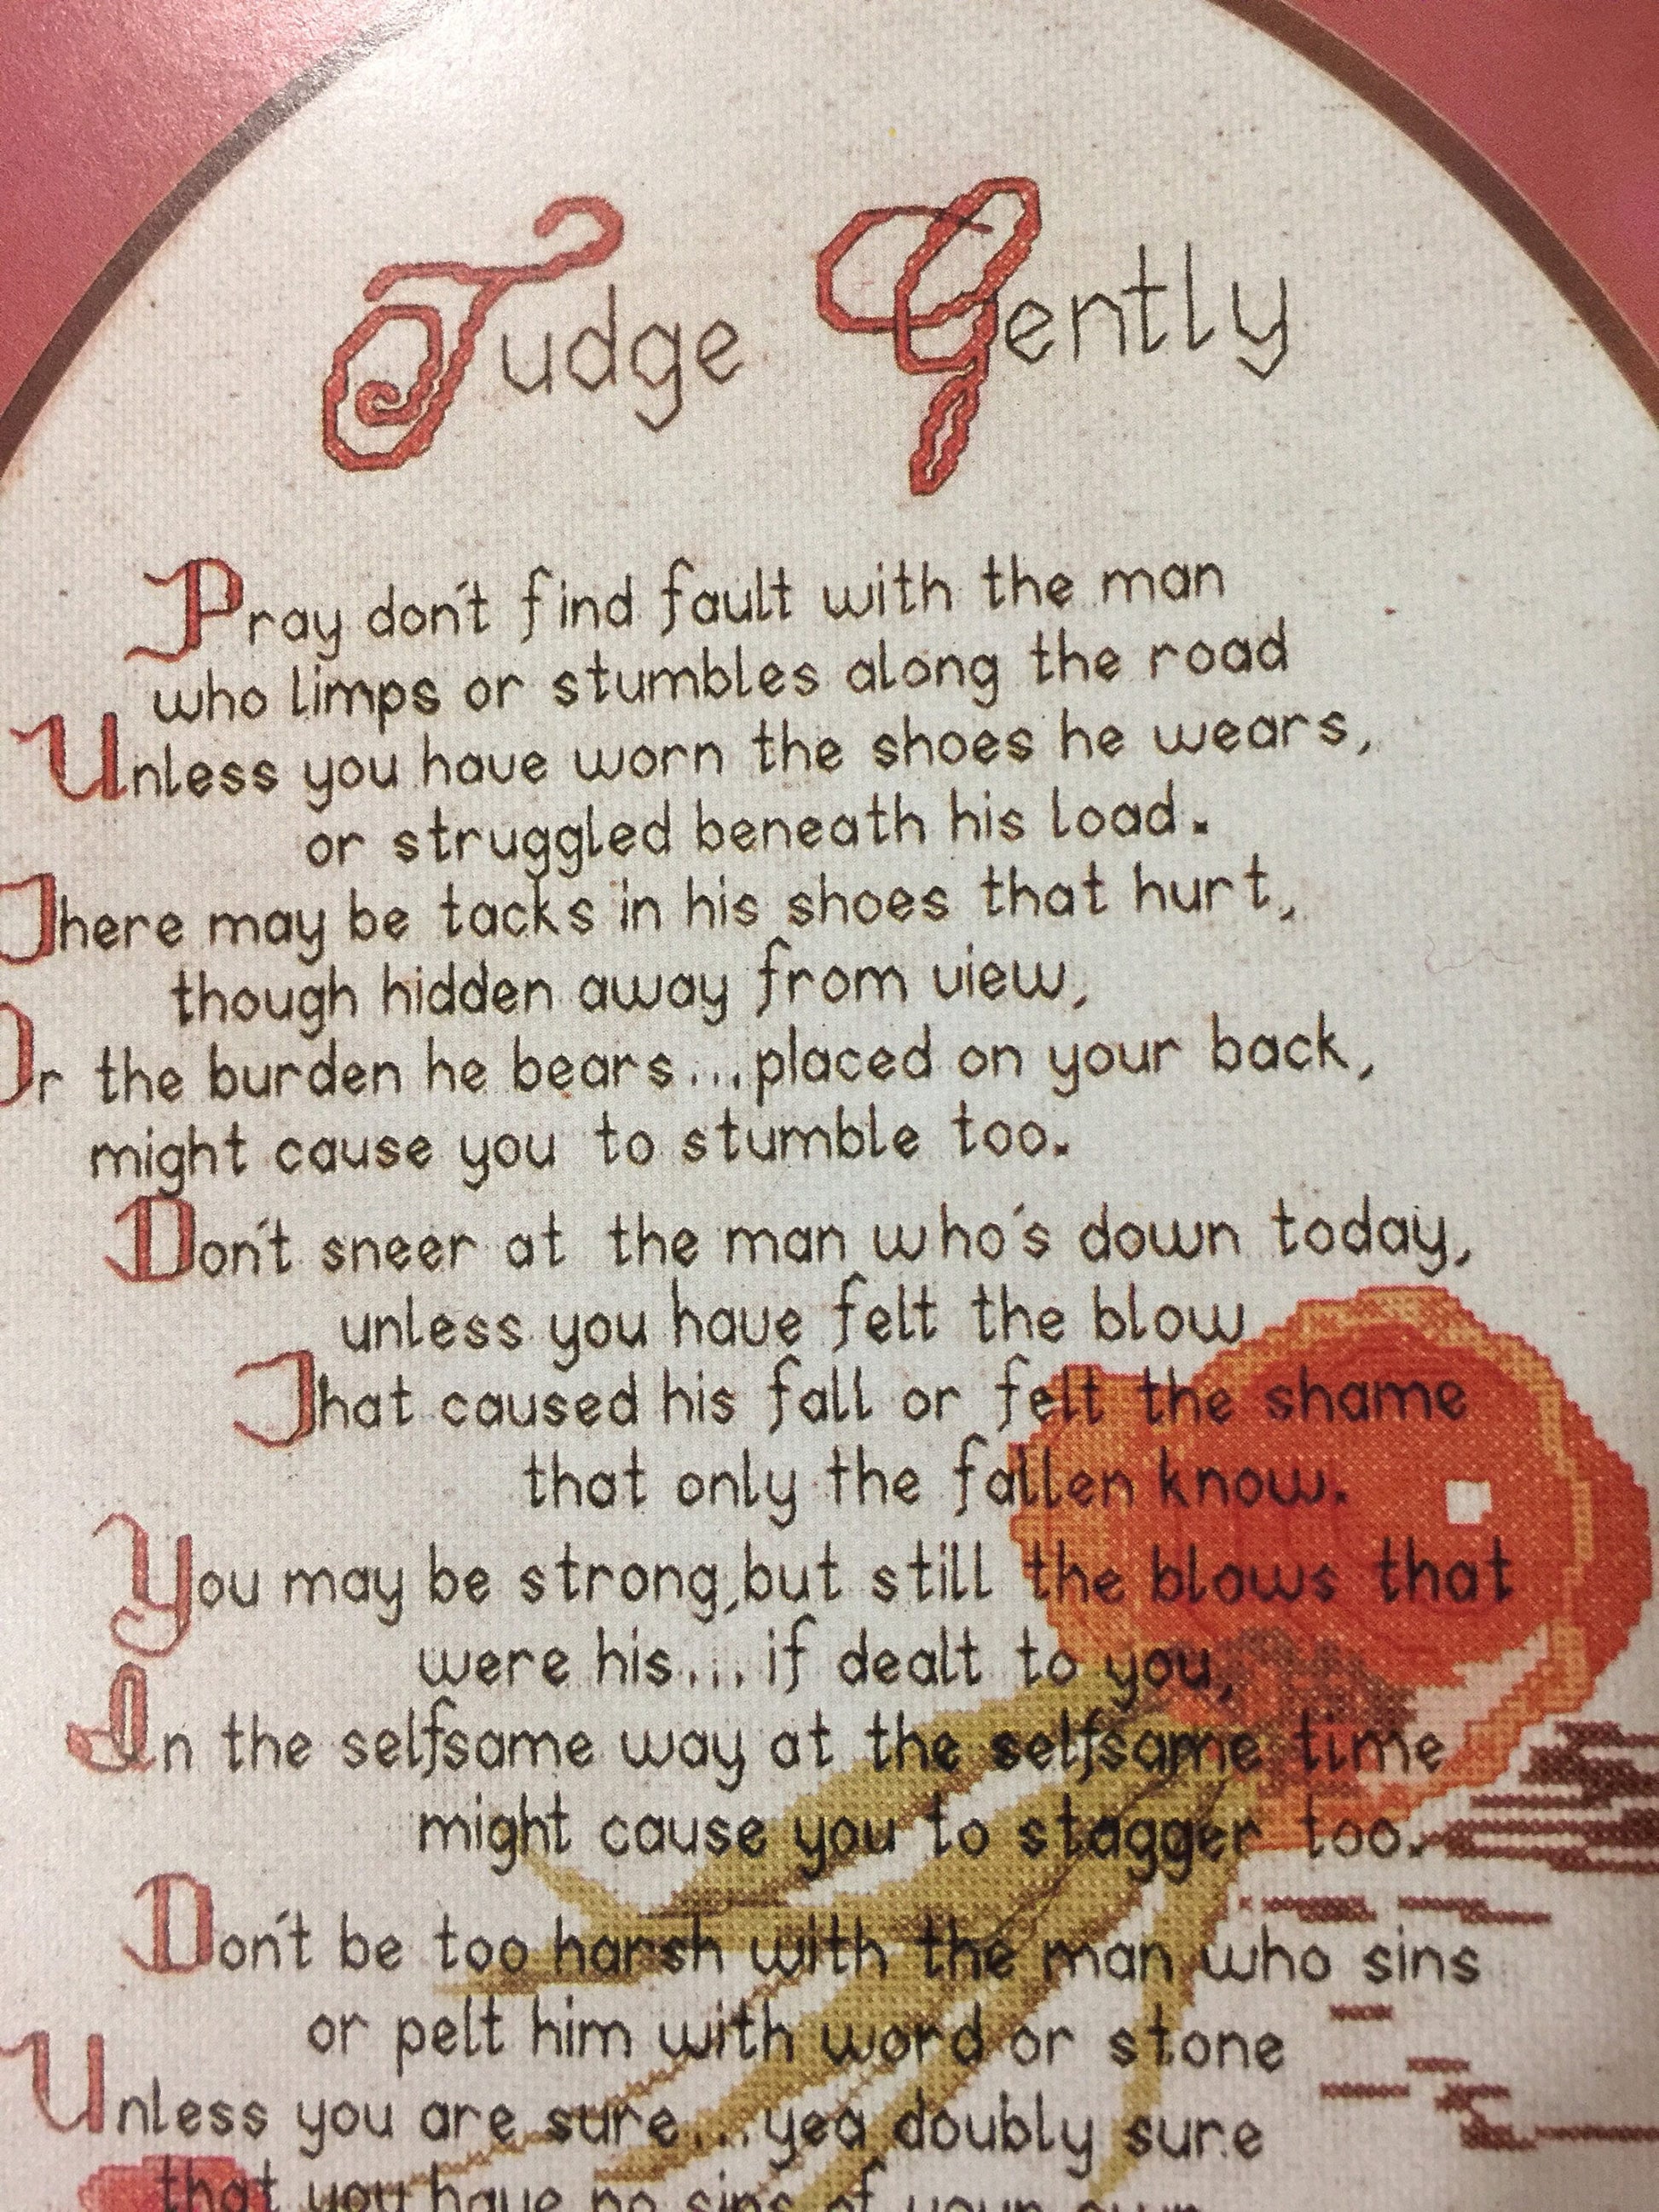 Judge Gently
Pray don't find fault with the man
who limps or stumbles along the road
Unless you have worn the shoes he wears,
or struggled beneath his load.
There may be tacks in his shoes that hurt,
though hidden away from view,
Or the burden he bears...placed on your back,
might cause you to stumble too.
Don't sneer at the man who's down today,
unless you have felt the blow
That caused his fall or felt the shame
that only the fallen know.
You may be strong, but still the blows that
were his... if dealt to you,
In the selfsame way at the selfsame time
might cause you to stagger too.
Don't be too harsh with the man who sins
or pelt him with word or stone
Unless you are sure...yea doubly sure
that you have no sins of your own